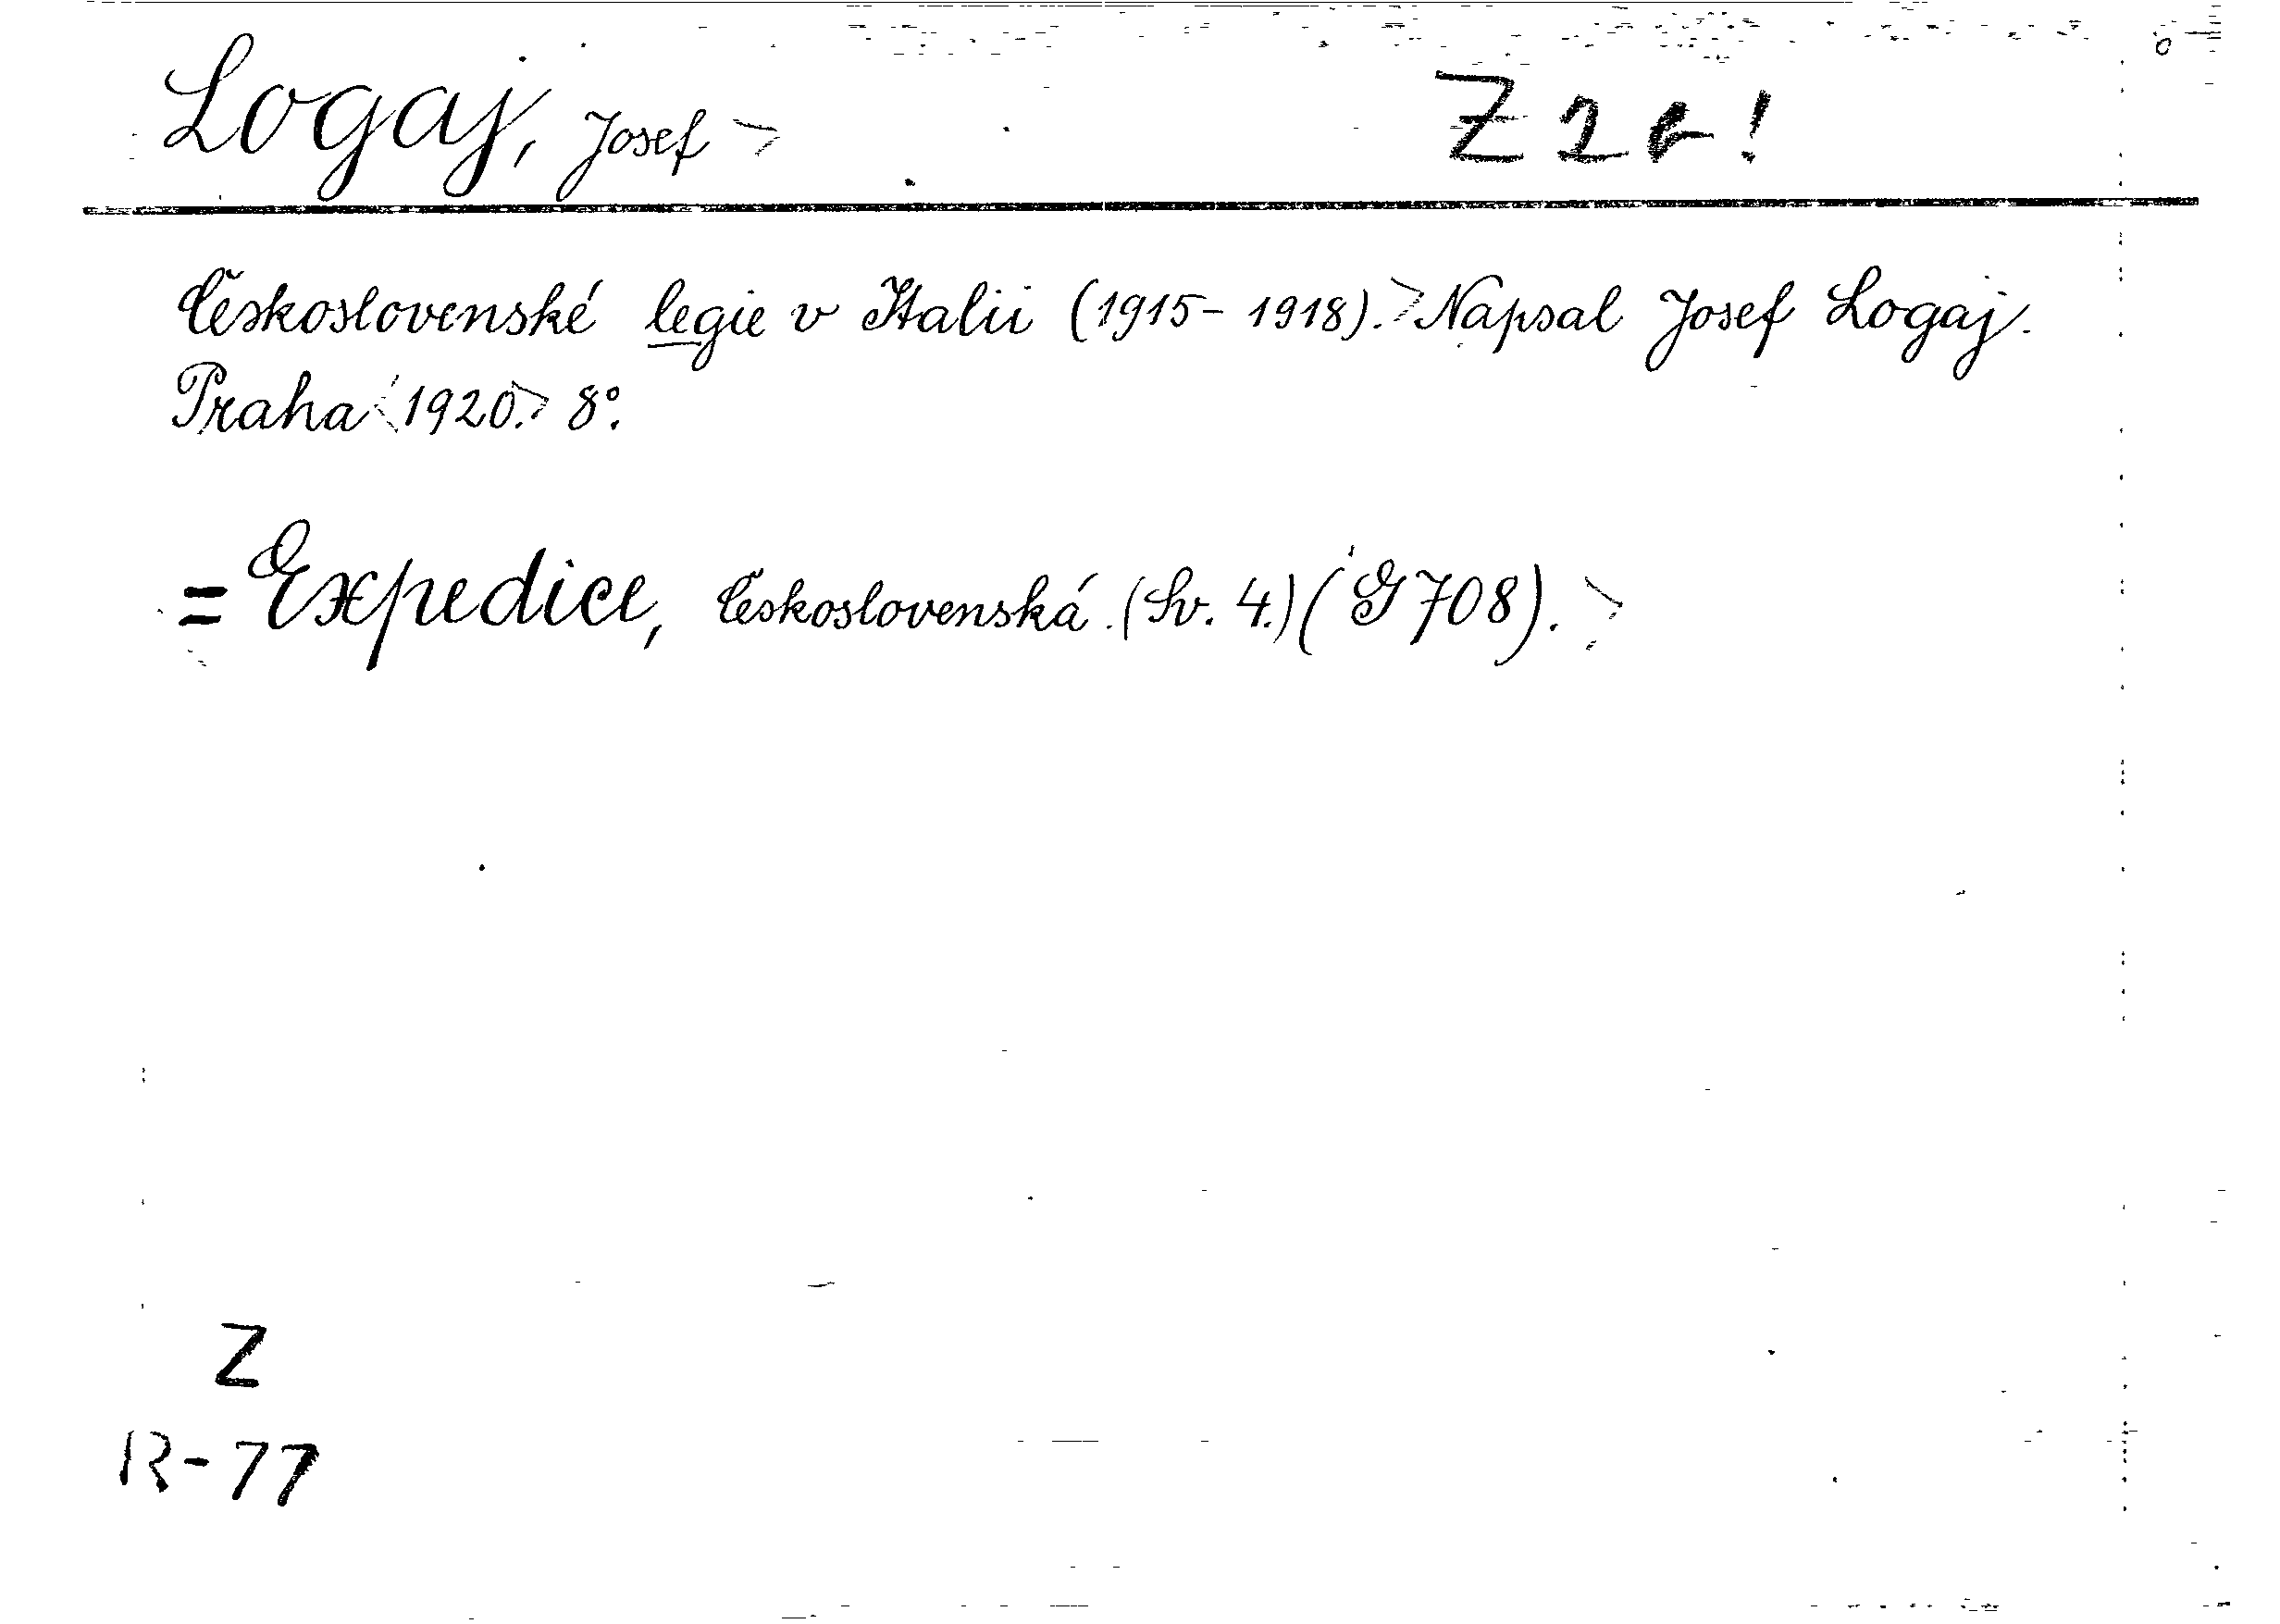 Logaj, Josef
Z 2 !
Československé legie v Italii (1915-1918). Napsal Josef Logaj.
Praha 1920. 8°.
= Expedice, Československá. (Sv. 4.) (G 708).
Z
R-77